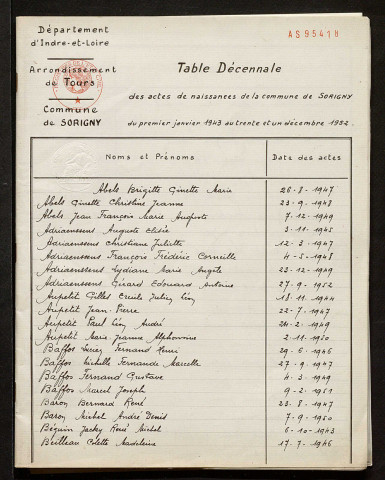 Département
d'Indre-et-Loire
AS95418
Arrondissement
de Tours
Table Décennale
des actes de naissances de la commune de SORIGNY
Commune
de SORIGNY
du premier janvier 1943 au trente et un décembre 1952.
Noms et Prénoms
Date des actes
Abels Brigitte Ginette Marie 26-8-1947
Abels Ginette Christine Jeanne 23-9-1948
Abels Jean François Marie Auguste 7-12-1949
Adriaenssens Auguste Elisée 3-11-1945
Adriaenssens Christiane Juliette 12-3-1947
Adriaenssens François Frédéric Corneille 4-5-1948
Adriaenssens Lydiane Marie Angèle 23-12-1949
Adriaenssens Gérard Edouard Antoine 27-9-1952
Aupetit Gilles Julien Léon 18-11-1944
Aupetit Jean-Pierre 22-7-1947
Aupetit Paul Léon André 24-2-1949
Aupetit Marie Jeanne Alphonsine 2-11-1950
Baffos Fernand Henri 29-6-1946
Baffos Michelle Fernande Marcelle 27-9-1947
Baffos Fernand Gustave 4-3-1949
Baffos Marcel Joseph 9-2-1951
Baron Bernard René 23-8-1947
Baron Michel André Denis 7-9-1950
Béguin Jacky René Michel 6-10-1943
Beilleau Colette Madeleine 17-7-1946